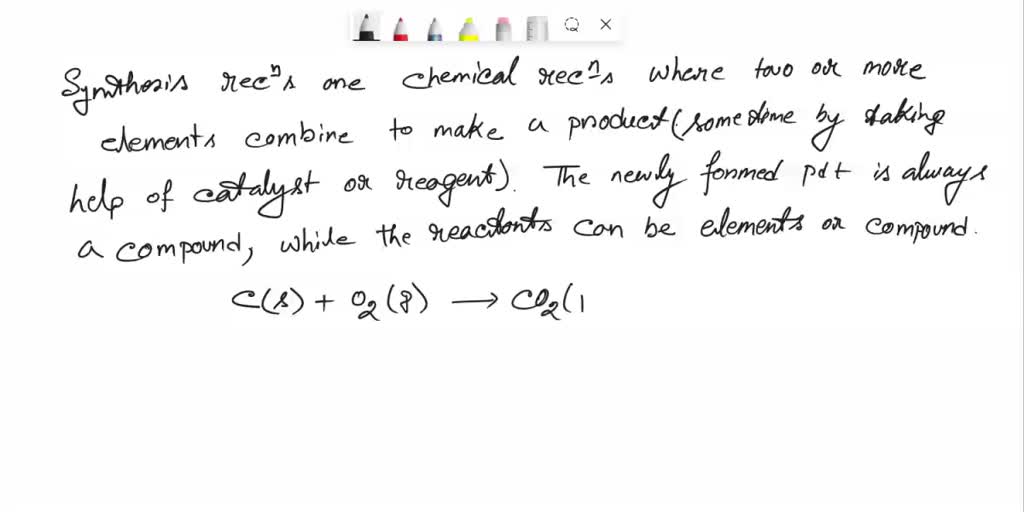 Synthesis recⁿs are chemical recⁿs where two or more
elements combine to make a product (sometime by taking
help of catalyst or reagent). The newly formed pdt is always
a compound, while the reactants can be elements or compound.
C(s) + O₂(g) → CO₂(